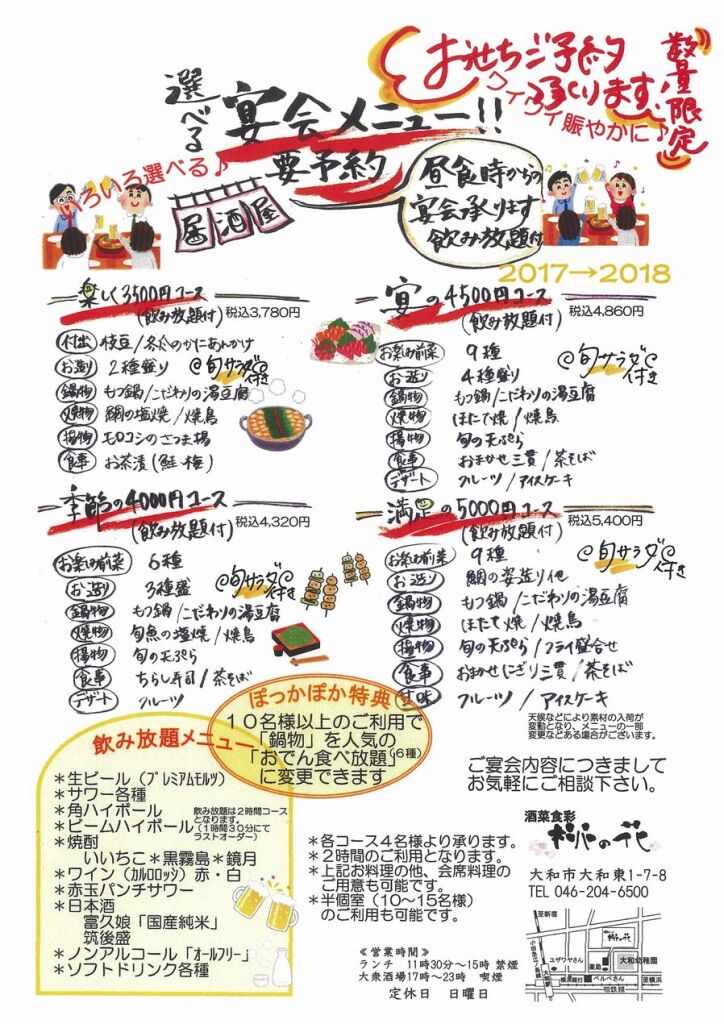 お世ちご予約
承ります。
数量限定
選べる
宴会メニュー!!
ワイワイ賑やかに♪
要予約
いろいろ選べる♪
居酒屋
昼食時からの
宴会承ります
飲み放題付
2017→2018
楽しく3500円コース
(飲み放題付)
税込3,780円
付出 枝豆/冬瓜のかにあんかけ
お造り 2種盛り
旬サラダ付き
鍋物 もつ鍋/こだわりの湯豆腐
焼物 鯛の塩焼/焼鳥
揚物 モロコシのさつま揚
食事 お茶漬(鮭・梅)
宴の4500円コース
(飲み放題付)
税込4,860円
お楽み前菜 9種
お造り 4種盛り
旬サラダ付き
鍋物 もつ鍋/こだわりの湯豆腐
焼物 ほたて焼/焼鳥
揚物 旬の天ぷら
食事 おまかせ三貫/茶そば
デザート フルーツ/アイスケーキ
季節の4000円コース
(飲み放題付)
税込4,320円
お楽み前菜 6種
お造り 3種盛
旬サラダ付き
鍋物 もつ鍋/こだわりの湯豆腐
焼物 旬魚の塩焼/焼鳥
揚物 旬の天ぷら
食事 ちらし寿司/茶そば
デザート フルーツ
満足の5000円コース
(飲み放題付)
税込5,400円
お楽み前菜 9種
お造り 鯛の姿造り他
旬サラダ付き
鍋物 もつ鍋/こだわりの湯豆腐
焼物 ほたて焼/焼鳥
揚物 旬の天ぷら/フライ盛合せ
食事 おまかせにぎり三貫/茶そば
甘味 フルーツ/アイスケーキ
天候などにより素材の入荷が
変動となり、メニューの一部
変更などある場合がございます。
ぽっかぽか特典
10名様以上のご利用で
「鍋物」を人気の
「おでん食べ放題」(6種)
に変更できます
飲み放題メニュー
*生ビール(プレミアムモルツ)
*サワー各種
*角ハイボール
*ビームハイボール
飲み放題は2時間コース
となります。
(1時間30分にて
ラストオーダー)
*焼酎
いいちこ*黒霧島*鏡月
*ワイン(カルロロッシ)赤・白
*赤玉パンチサワー
*日本酒
富久娘「国産純米」
筑後盛
*ノンアルコール「オールフリー」
*ソフトドリンク各種
*各コース4名様より承ります。
*2時間のご利用となります。
*上記お料理の他、会席料理の
ご用意も可能です。
*半個室(10〜15名様)
のご利用も可能です。
≪営業時間≫
ランチ 11時30分〜15時 禁煙
大衆酒場17時〜23時 喫煙
定休日 日曜日
ご宴会内容につきまして
お気軽にご相談下さい。
酒菜食彩
大和市大和東1-7-8
TEL 046-204-6500
至新宿
小田急江ノ島線
大和駅
ユザワヤさん
薬局
大和幼稚園
横浜銀行
ベルベさん
至横浜
相鉄線